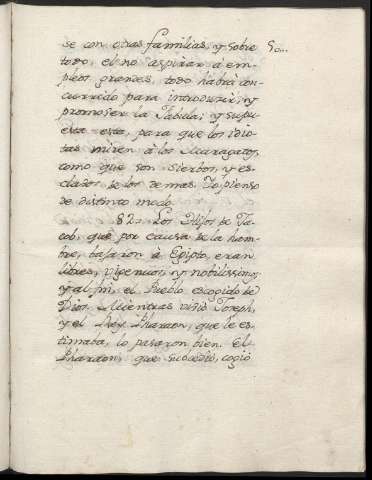 se con otras familias, y sobre 50..
todo, el no aspirar à em-
pleos grandes, todo habrà con-
currido para introducir, y
promover la Fabula; y supu-
esta esta, para que los idio-
tas miren à los Maragatos,
como que son siervos, y es-
clavos de los demas. Yo pienso
de distinto modo.
82. Los Hijos de Ja-
cob, que por causa de la ham-
bre, bajaron à Egipto, eran
libres, ingenuos, y nobilissimos;
y al fin, el Pueblo escogido de
Dios. Mientras viviò Joseph,
y el Rey Pharaon, que le es-
timaba, lo pasaron bien. El
Pharaon, que sucediò, cogiò